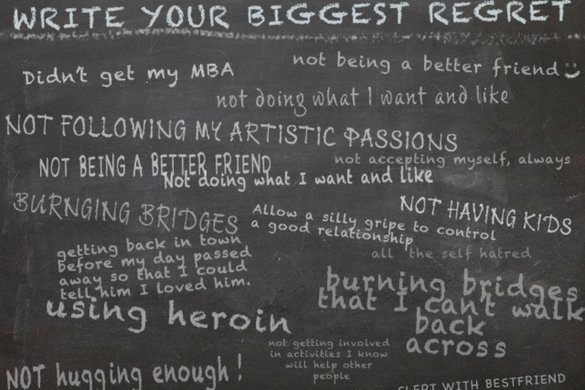 WRITE YOUR BIGGEST REGRET
Didn't get my MBA
not being a better friend
not doing what I want and like
NOT FOLLOWING MY ARTISTIC PASSIONS
NOT BEING A BETTER FRIEND
not accepting myself, always
Not doing what I want and like
BURNGING BRIDGES
NOT HAVING KIDS
Allow a silly gripe to control
a good relationship
getting back in town
before my day passed
away so that I could
tell him I loved him.
all the self hatred
burning bridges
that I can't walk
back
across
using heroin
not getting involved
in activities I know
will help other
people
NOT hugging enough!
SLEPT WITH BESTFRIEND